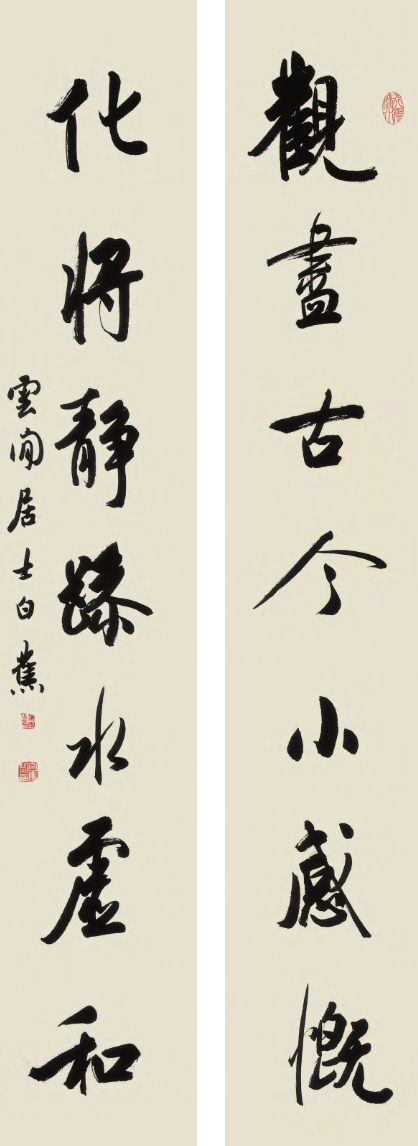 觀盡古今小感慨
化將靜躁水虛和
雲間居士白蕉